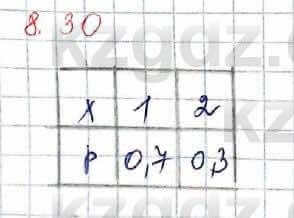 8.30
X 1 2
P 0,7 0,3